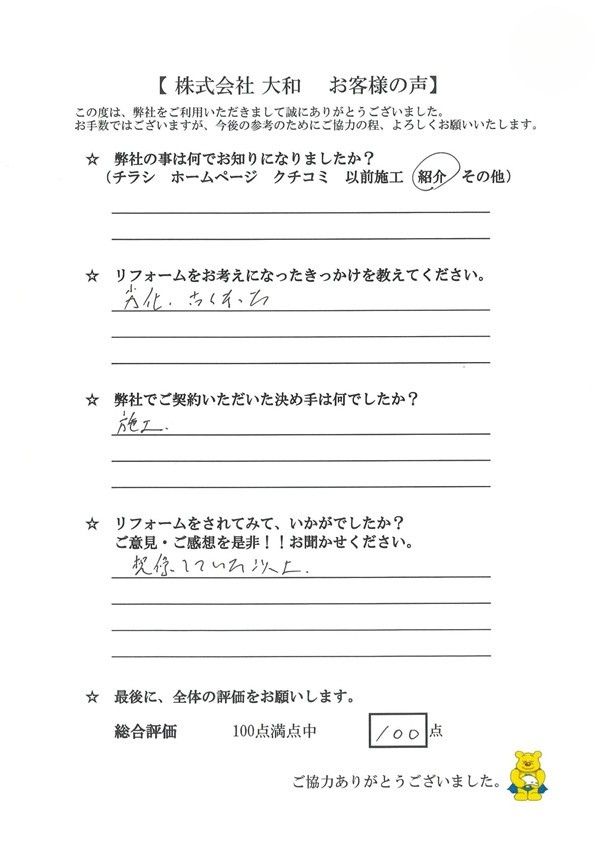 【 株式会社 大和　お客様の声】
この度は、弊社をご利用いただきまして誠にありがとうございました。
お手数ではございますが、今後の参考のためにご協力の程、よろしくお願いいたします。
☆ 弊社の事は何でお知りになりましたか？
（チラシ　ホームページ　クチコミ　以前施工　紹介　その他）
☆ リフォームをお考えになったきっかけを教えてください。
劣化.
☆ 弊社でご契約いただいた決め手は何でしたか？
施工.
☆ リフォームをされてみて、いかがでしたか？
ご意見・ご感想を是非！！お聞かせください。
想像していた以上.
☆ 最後に、全体の評価をお願いします。
総合評価　100点満点中　100 点
ご協力ありがとうございました。